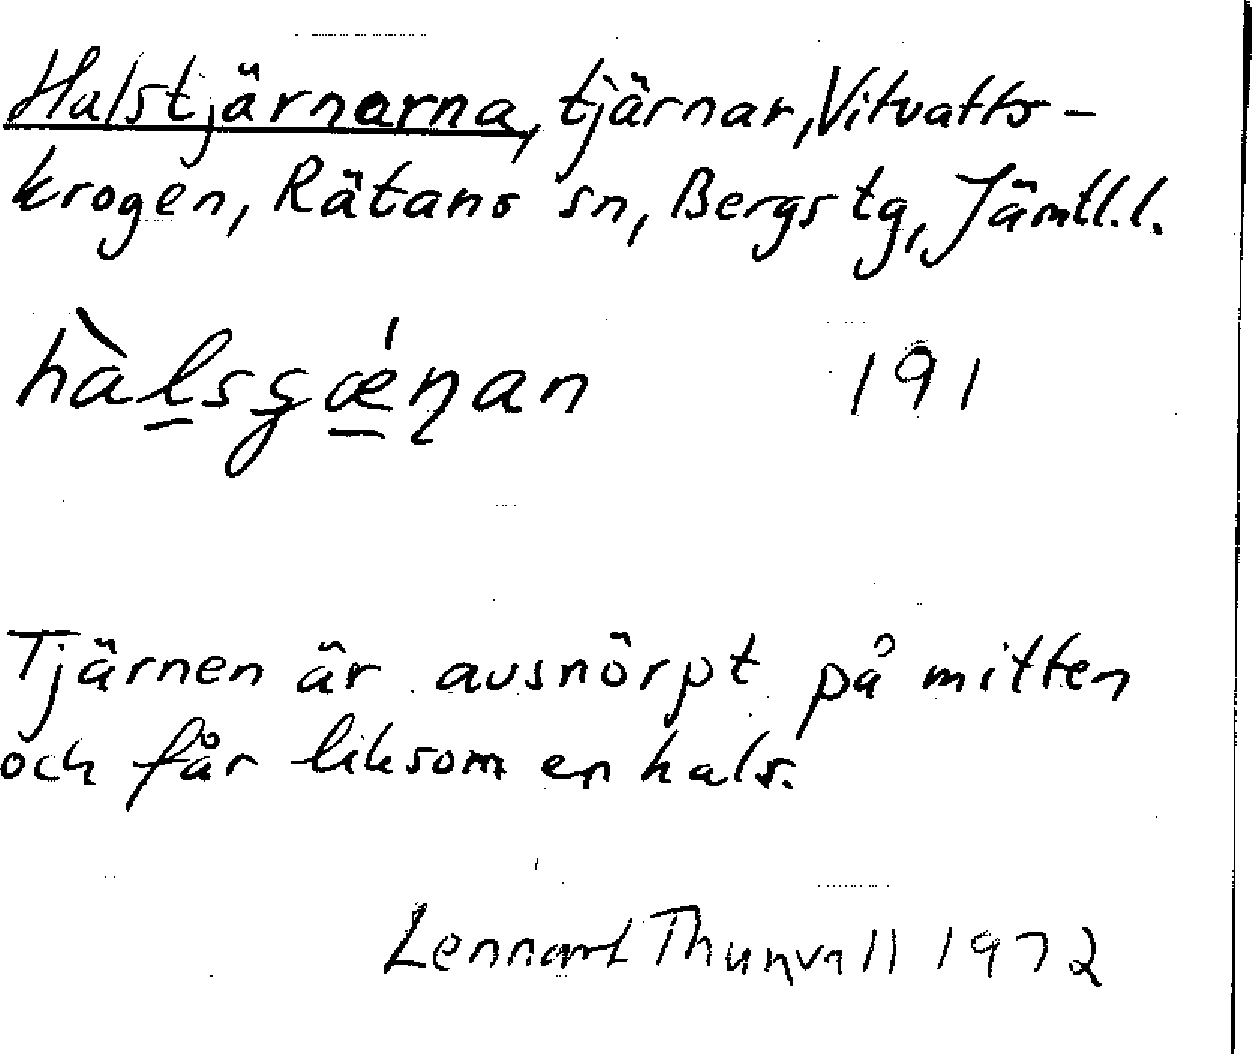 Halstjärnarna, tjärnar, Vitvatts-
krogen, Rätans sn, Bergs tg, Jämtl.l.
191
Tjärnen är avsnörpt på mitten
och får liksom en hals.
Lennart Thunvall 1972